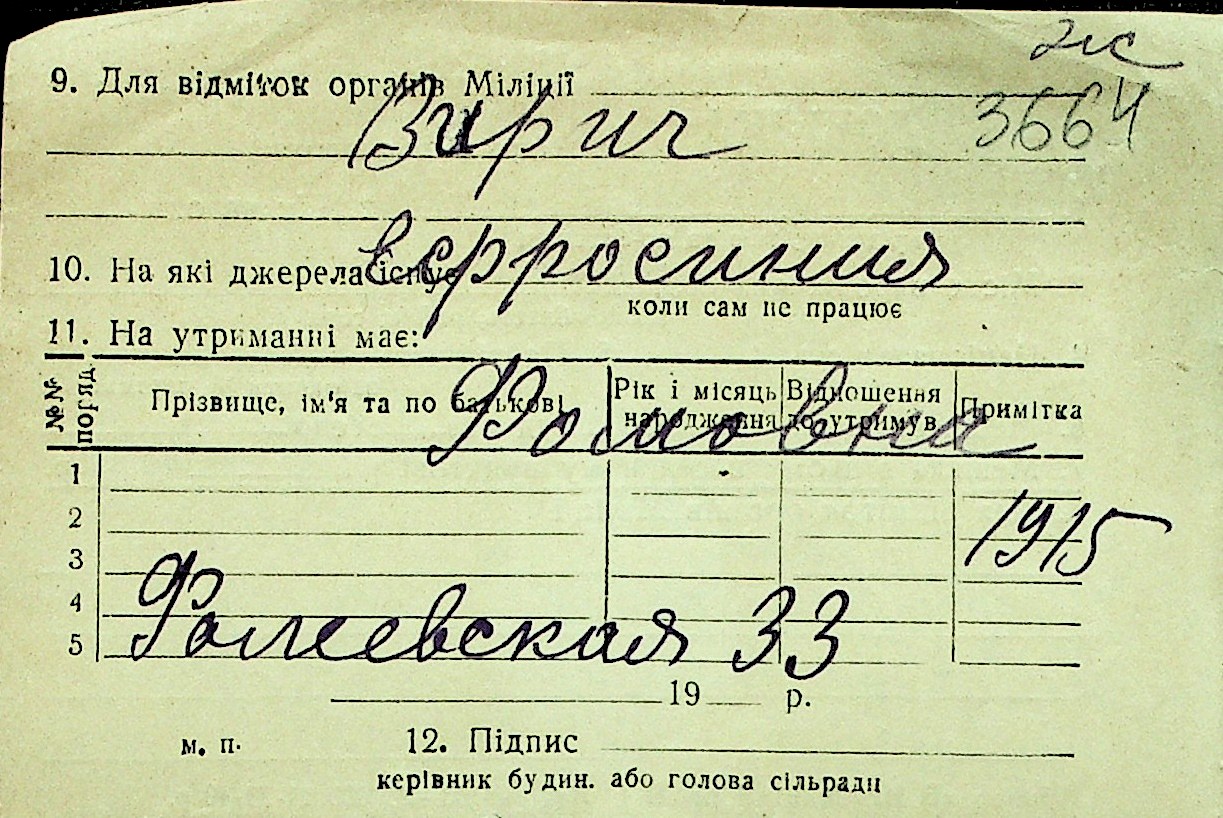 2лс
9. Для відміток органів Міліції
3664
Вирич
10. На які джерела існує
Єфросиния
коли сам не працює
11. На утриманні має:
№№ поряд. Прізвище, ім'я та по батькові Рік і місяць народження Відношення до утримув. Примітка
Фомовна
1
2
1915
3
4
Фалеевская 33
5
19 р.
м. п. 12. Підпис
керівник будин. або голова сільради